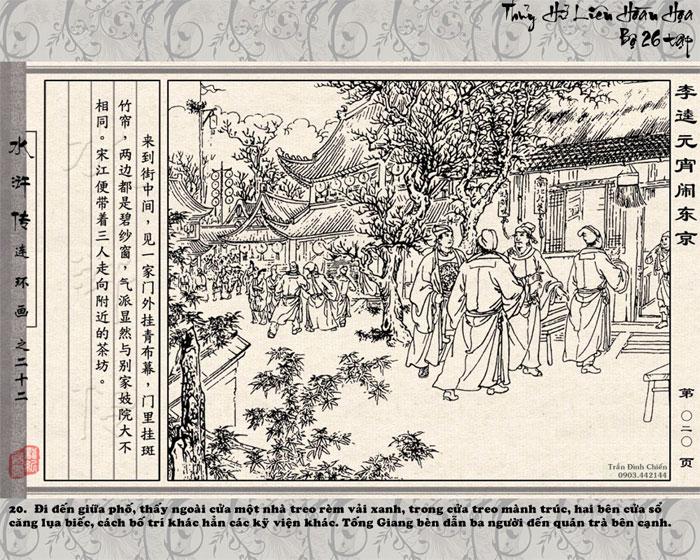 Thủy Hử Liên Hoàn Họa
Bộ 26 tập
水浒传连环画之二十二
来到街中间，见一家门外挂青布幕，门里挂斑
竹帘，两边都是碧纱窗，气派显然与别家妓院大不
相同。宋江便带着三人走向附近的茶坊。
李逵元宵闹东京
第〇二〇页
Trần Đình Chiến
0903.442144
20. Đi đến giữa phố, thấy ngoài cửa một nhà treo rèm vải xanh, trong cửa treo mành trúc, hai bên cửa sổ
căng lụa biếc, cách bố trí khác hẳn các kỹ viện khác. Tống Giang bèn dẫn ba người đến quán trà bên cạnh.